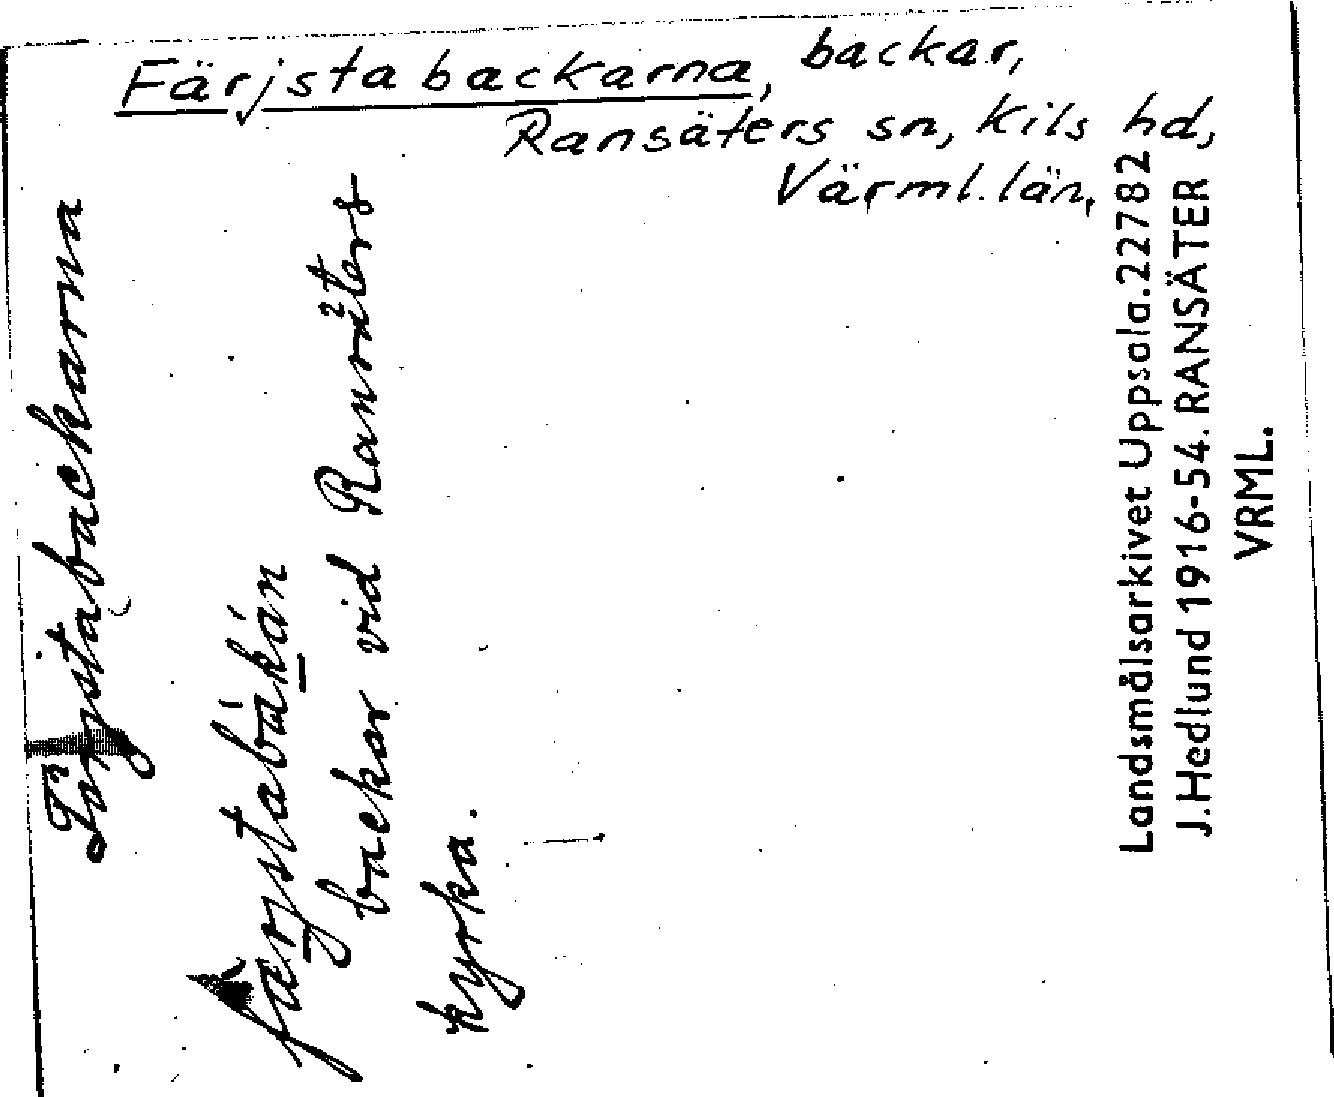 Färjstabackarna, backar,
Ransäters sn, Kils hd,
Värml. län,
Färjstabackarna
backar vid Ransäters
kyrka.
Landsmålsarkivet Uppsala. 22782
J. Hedlund 1916-54. RANSÄTER
VRML.